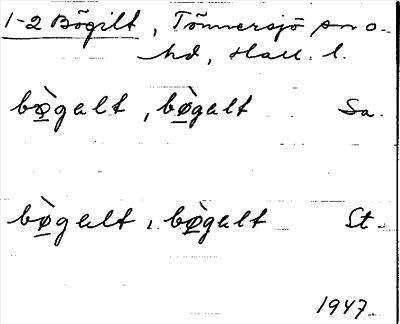 1-2 Bögilt, Tönnersjö sn o.
hd, Hall. l.
bø̀galt, bø̀galt Sa.
bø̀galt, bø̀galt St.
1947.